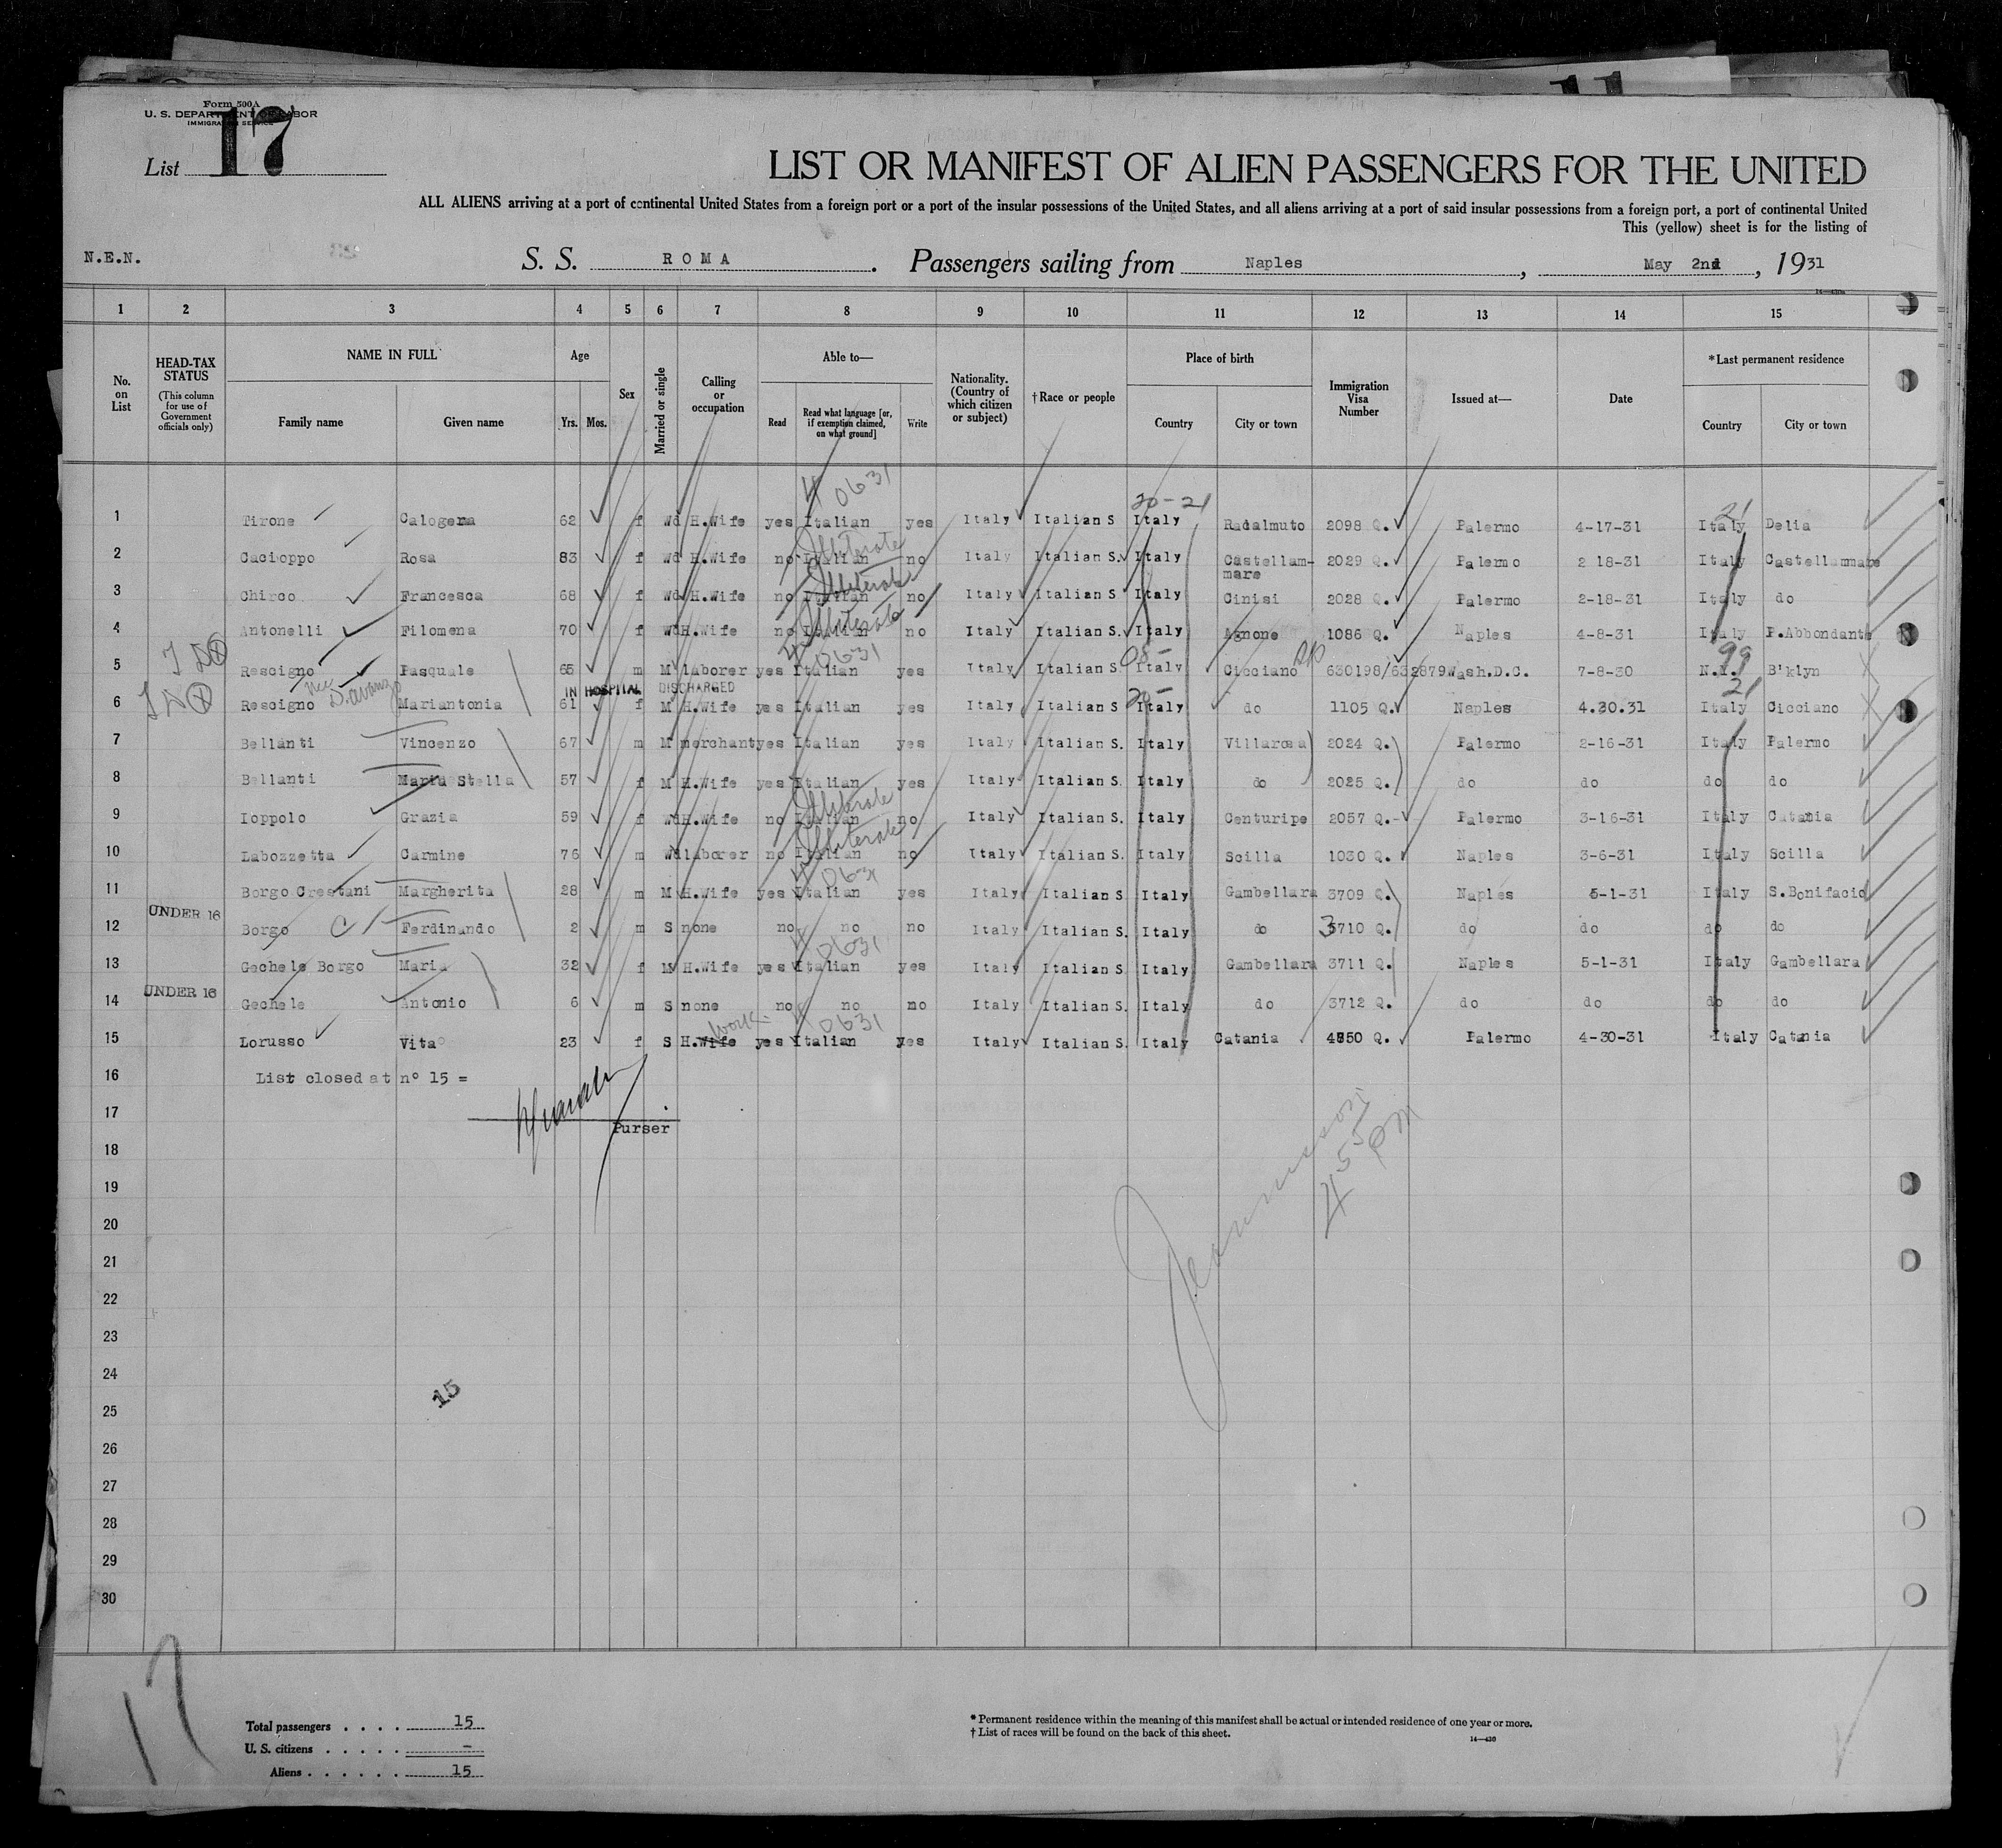 Form 500A
U. S. DEPARTMENT OF LABOR
IMMIGRATION SERVICE
List 17
LIST OR MANIFEST OF ALIEN PASSENGERS FOR THE UNITED
ALL ALIENS arriving at a port of continental United States from a foreign port or a port of the insular possessions of the United States, and all aliens arriving at a port of said insular possessions from a foreign port, a port of continental United
This (yellow) sheet is for the listing of
N.E.N. S. S. ROMA. Passengers sailing from Naples, May 2nd, 1931
1 2 3 4 5 6 7 8 9 10 11 12 13 14 15
No. on List
HEAD-TAX STATUS (This column for use of Government officials only)
NAME IN FULL Family name Given name
Age Yrs. Mos.
Sex
Married or single
Calling or occupation
Able to— Read Read what language [or, if exemption claimed, on what ground] Write
Nationality. (Country of which citizen or subject)
†Race or people
Place of birth Country City or town
Immigration Visa Number
Issued at—
Date
*Last permanent residence Country City or town
4 0631 20-21 21
1 Tirone Calogera 62 f Wd H.Wife yes Italian yes Italy Italian S Italy Racalmuto 2098 Q. Palermo 4-17-31 Italy Delia
Illiterate
2 Cacioppo Rosa 83 f Wd H.Wife no Italian no Italy Italian S. Italy Castellammare 2029 Q. Palermo 2 18-31 Italy Castellammare
Illiterate
3 Chirco Francesca 68 f Wd H.Wife no Italian no Italy Italian S Italy Cinisi 2028 Q. Palermo 2-18-31 Italy do
Illiterate
4 Antonelli Filomena 70 f Wd H.Wife no Italian no Italy Italian S. Italy Agnone 1086 Q. Naples 4-8-31 Italy P.Abbondante
0631 08- 99
5 Rescigno Pasquale 65 m M laborer yes Italian yes Italy Italian S. Italy Cicciano 630198/632879 Wash.D.C. 7-8-30 N.Y. B'klyn
nee D'avanzo IN HOSPITAL DISCHARGED 20- 21
6 Rescigno Mariantonia 61 f M H.Wife yes Italian yes Italy Italian S. Italy do 1105 Q. Naples 4.20.31 Italy Cicciano
7 Bellanti Vincenzo 67 m M merchant yes Italian yes Italy Italian S. Italy Villarosa 2024 Q. Palermo 2-16-31 Italy Palermo
8 Bellanti Maria Stella 57 f M H.Wife yes Italian yes Italy Italian S. Italy do 2025 Q. do do do do
Illiterate
9 Ioppolo Grazia 59 f Wd H.Wife no Italian no Italy Italian S. Italy Centuripe 2057 Q.- Palermo 3-16-31 Italy Catania
Illiterate
10 Labozzetta Carmine 76 m Wd laborer no Italian no Italy Italian S. Italy Scilla 1030 Q. Naples 3-6-31 Italy Scilla
0631
11 Borgo Crestani Margherita 28 m M H.Wife yes Italian yes Italy Italian S Italy Gambellara 3709 Q. Naples 5-1-31 Italy S.Bonifacio
UNDER 16
12 Borgo Ferdinando 2 m S none no no no Italy Italian S. Italy do 3710 Q. do do do do
4 0631
13 Gechele Borgo Maria 32 f M H.Wife yes Italian yes Italy Italian S. Italy Gambellara 3711 Q. Naples 5-1-31 Italy Gambellara
UNDER 16
14 Gechele Antonio 6 m S none no no no Italy Italian S. Italy do 3712 Q. do do do do
work 4 0631
15 Lorusso Vita 23 f S H.Wife yes Italian yes Italy Italian S. Italy Catania 4850 Q. Palermo 4-30-31 Italy Catania
16 List closed at nº 15 =
17
Purser
18
4 55 PM
19
20
21
22
23
24
15
25
26
27
28
29
30
17
Total passengers . . . . 15
U. S. citizens . . . . . –
Aliens . . . . . . 15
* Permanent residence within the meaning of this manifest shall be actual or intended residence of one year or more.
† List of races will be found on the back of this sheet.
14—430